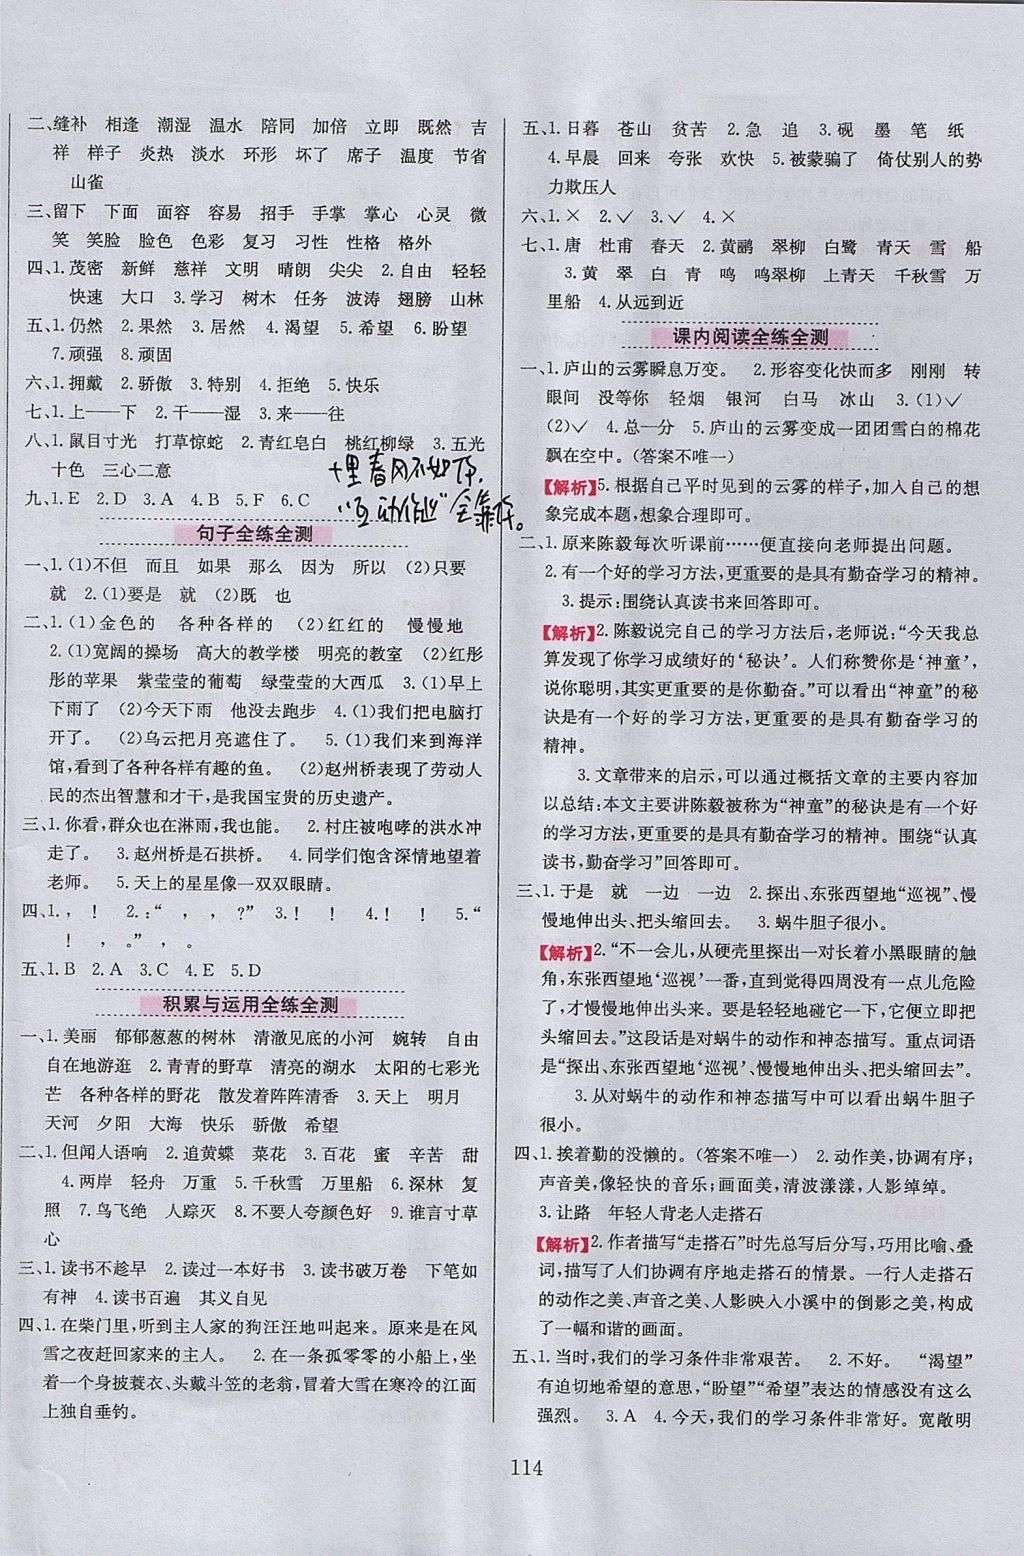 二、缝补　相逢　潮湿　温水　陪同　加倍　立即　既然　吉
祥　样子　炎热　淡水　环形　坏了　席子　温度　节省
山雀
三、留下　下面　面容　容易　招手　手掌　掌心　心灵　微
笑　笑脸　脸色　色彩　复习　习性　性格　格外
四、1.茂密　新鲜　慈祥　文明　晴朗　尖尖　2.自由　轻轻
快速　大口　3.学习　树木　任务　波涛　翅膀　山林
五、1.仍然　2.果然　3.居然　4.渴望　5.希望　6.盼望
7.顽强　8.顽固
六、1.拥戴　2.骄傲　3.特别　4.拒绝　5.快乐
七、1.上——下　2.干——湿　3.来——往
八、1.鼠目寸光　打草惊蛇　2.青红皂白　桃红柳绿　3.五光
十色　三心二意
十里春风不如你,
九、1.E　2.D　3.A　4.B　5.F　6.C
句子全练全测
一、1.(1)不但　而且　如果　那么　因为　所以　(2)只要
就　2.(1)要是　就　(2)既　也
二、1.(1)金色的　各种各样的　(2)红红的　慢慢地
2.(1)宽阔的操场　高大的教学楼　明亮的教室　(2)红彤
彤的苹果　紫莹莹的葡萄　绿莹莹的大西瓜　3.(1)早上
下了雨　(2)今天下雨　他没去跑步　4.(1)我们把电脑打
开了。　(2)乌云把月亮遮住了。　5.(1)我们来到海洋
馆,看到了各种各样有趣的鱼。　(2)赵州桥表现了劳动人
民的杰出智慧和才干,是我国宝贵的历史遗产。
三、1.你看,群众也在淋雨,我也能。　2.村庄被咆哮的洪水冲
走了。　3.赵州桥是石拱桥。　4.同学们饱含深情地望着
老师。　5.天上的星星像一双双眼睛。
四、1.，　！　2.：“　，　，　？”　3.！　！　4.！　！　5.“
！　，　。”，　。
五、1.B　2.A　3.C　4.E　5.D
积累与运用全练全测
一、1.美丽　郁郁葱葱的树林　清澈见底的小河　婉转　自由
自在地游逛　2.青青的野草　清亮的湖水　太阳的七彩光
芒　各种各样的野花　散发着阵阵清香　3.天上　明月
天河　夕阳　大海　快乐　骄傲　希望
二、1.但闻人语响　2.追黄蝶　菜花　3.百花　蜜　辛苦　甜
4.两岸　轻舟　万重　5.千秋雪　万里船　6.深林　复
照　7.鸟飞绝　人踪灭　8.不要人夸颜色好　9.谁言寸草
心
三、1.读书不趁早　2.读过一本好书　3.读书破万卷　下笔如
有神　4.读书百遍　其义自见
四、1.在柴门里,听到主人家的狗汪汪地叫起来。原来是在风
雪之夜赶回家来的主人。　2.在一条孤零零的小船上,有
一个身披蓑衣、头戴斗笠的老翁,冒着大雪在寒冷的江面
上独自垂钓。
五、1.日暮　苍山　贫苦　2.急　追　3.砚　墨　笔　纸
4.早晨　回来　夸张　欢快　5.被蒙骗了　倚仗别人的势
力欺压人
六、1.×　2.√　3.√　4.×
七、1.唐　杜甫　春天　2.黄鹂　翠柳　白鹭　青天　雪　船
3.黄　翠　白　青　鸣　鸣翠柳　上青天　千秋雪　万
里船　4.从远到近
课内阅读全练全测
一、1.庐山的云雾瞬息万变。　2.形容变化快而多　刚刚　转
眼间　没等你　轻烟　银河　白马　冰山　3.(1)√
(2)√　4.总—分　5.庐山的云雾变成一团团雪白的棉花
飘在空中。(答案不唯一)
【解析】5.根据自己平时见到的云雾的样子,加入自己的想
象完成本题,想象合理即可。
二、1.原来陈毅每次听课前……便直接向老师提出问题。
2.有一个好的学习方法,更重要的是具有勤奋学习的精神。
3.提示:围绕认真读书来回答即可。
【解析】2.陈毅说完自己的学习方法后,老师说:“今天我总
算发现了你学习成绩好的‘秘诀’。人们称赞你是‘神童’,
说你聪明,其实更重要的是你勤奋。”可以看出“神童”的秘
诀是有一个好的学习方法,更重要的是具有勤奋学习的
精神。
3.文章带来的启示,可以通过概括文章的主要内容加
以总结:本文主要讲陈毅被称为“神童”的秘诀是有一个好
的学习方法,更重要的是具有勤奋学习的精神。围绕“认真
读书,勤奋学习”回答即可。
三、1.于是　就　一边　一边　2.探出、东张西望地“巡视”、慢
慢地伸出头、把头缩回去。　3.蜗牛胆子很小。
【解析】2.“不一会儿,从硬壳里探出一对长着小黑眼睛的触
角,东张西望地‘巡视’一番,直到觉得四周没有一点儿危险
才慢慢地伸出头来。要是轻轻地碰它一下,它会立刻把
头缩回去。”这段话是对蜗牛的动作和神态描写。重点词语
是“探出、东张西望地‘巡视’、慢慢地伸出头、把头缩回去”。
3.从对蜗牛的动作和神态描写中可以看出蜗牛胆子
很小。
四、1.挨着勤的没懒的。(答案不唯一)　2.动作美,协调有序;
声音美,像轻快的音乐;画面美,清波漾漾,人影绰绰。
3.让路　年轻人背老人走搭石
【解析】2.作者描写“走搭石”时先总写后分写,巧用比喻、叠
词,描写了人们协调有序地走搭石的情景。一行人走搭石
的动作之美、声音之美、人影映入小溪中的倒影之美,构成
了一幅和谐的画面。
五、1.当时,我们的学习条件非常艰苦。　2.不好。　“渴望”
有迫切地希望的意思,“盼望”“希望”表达的情感没有这么
强烈。　3.A　4.今天,我们的学习条件非常好。宽敞明
114